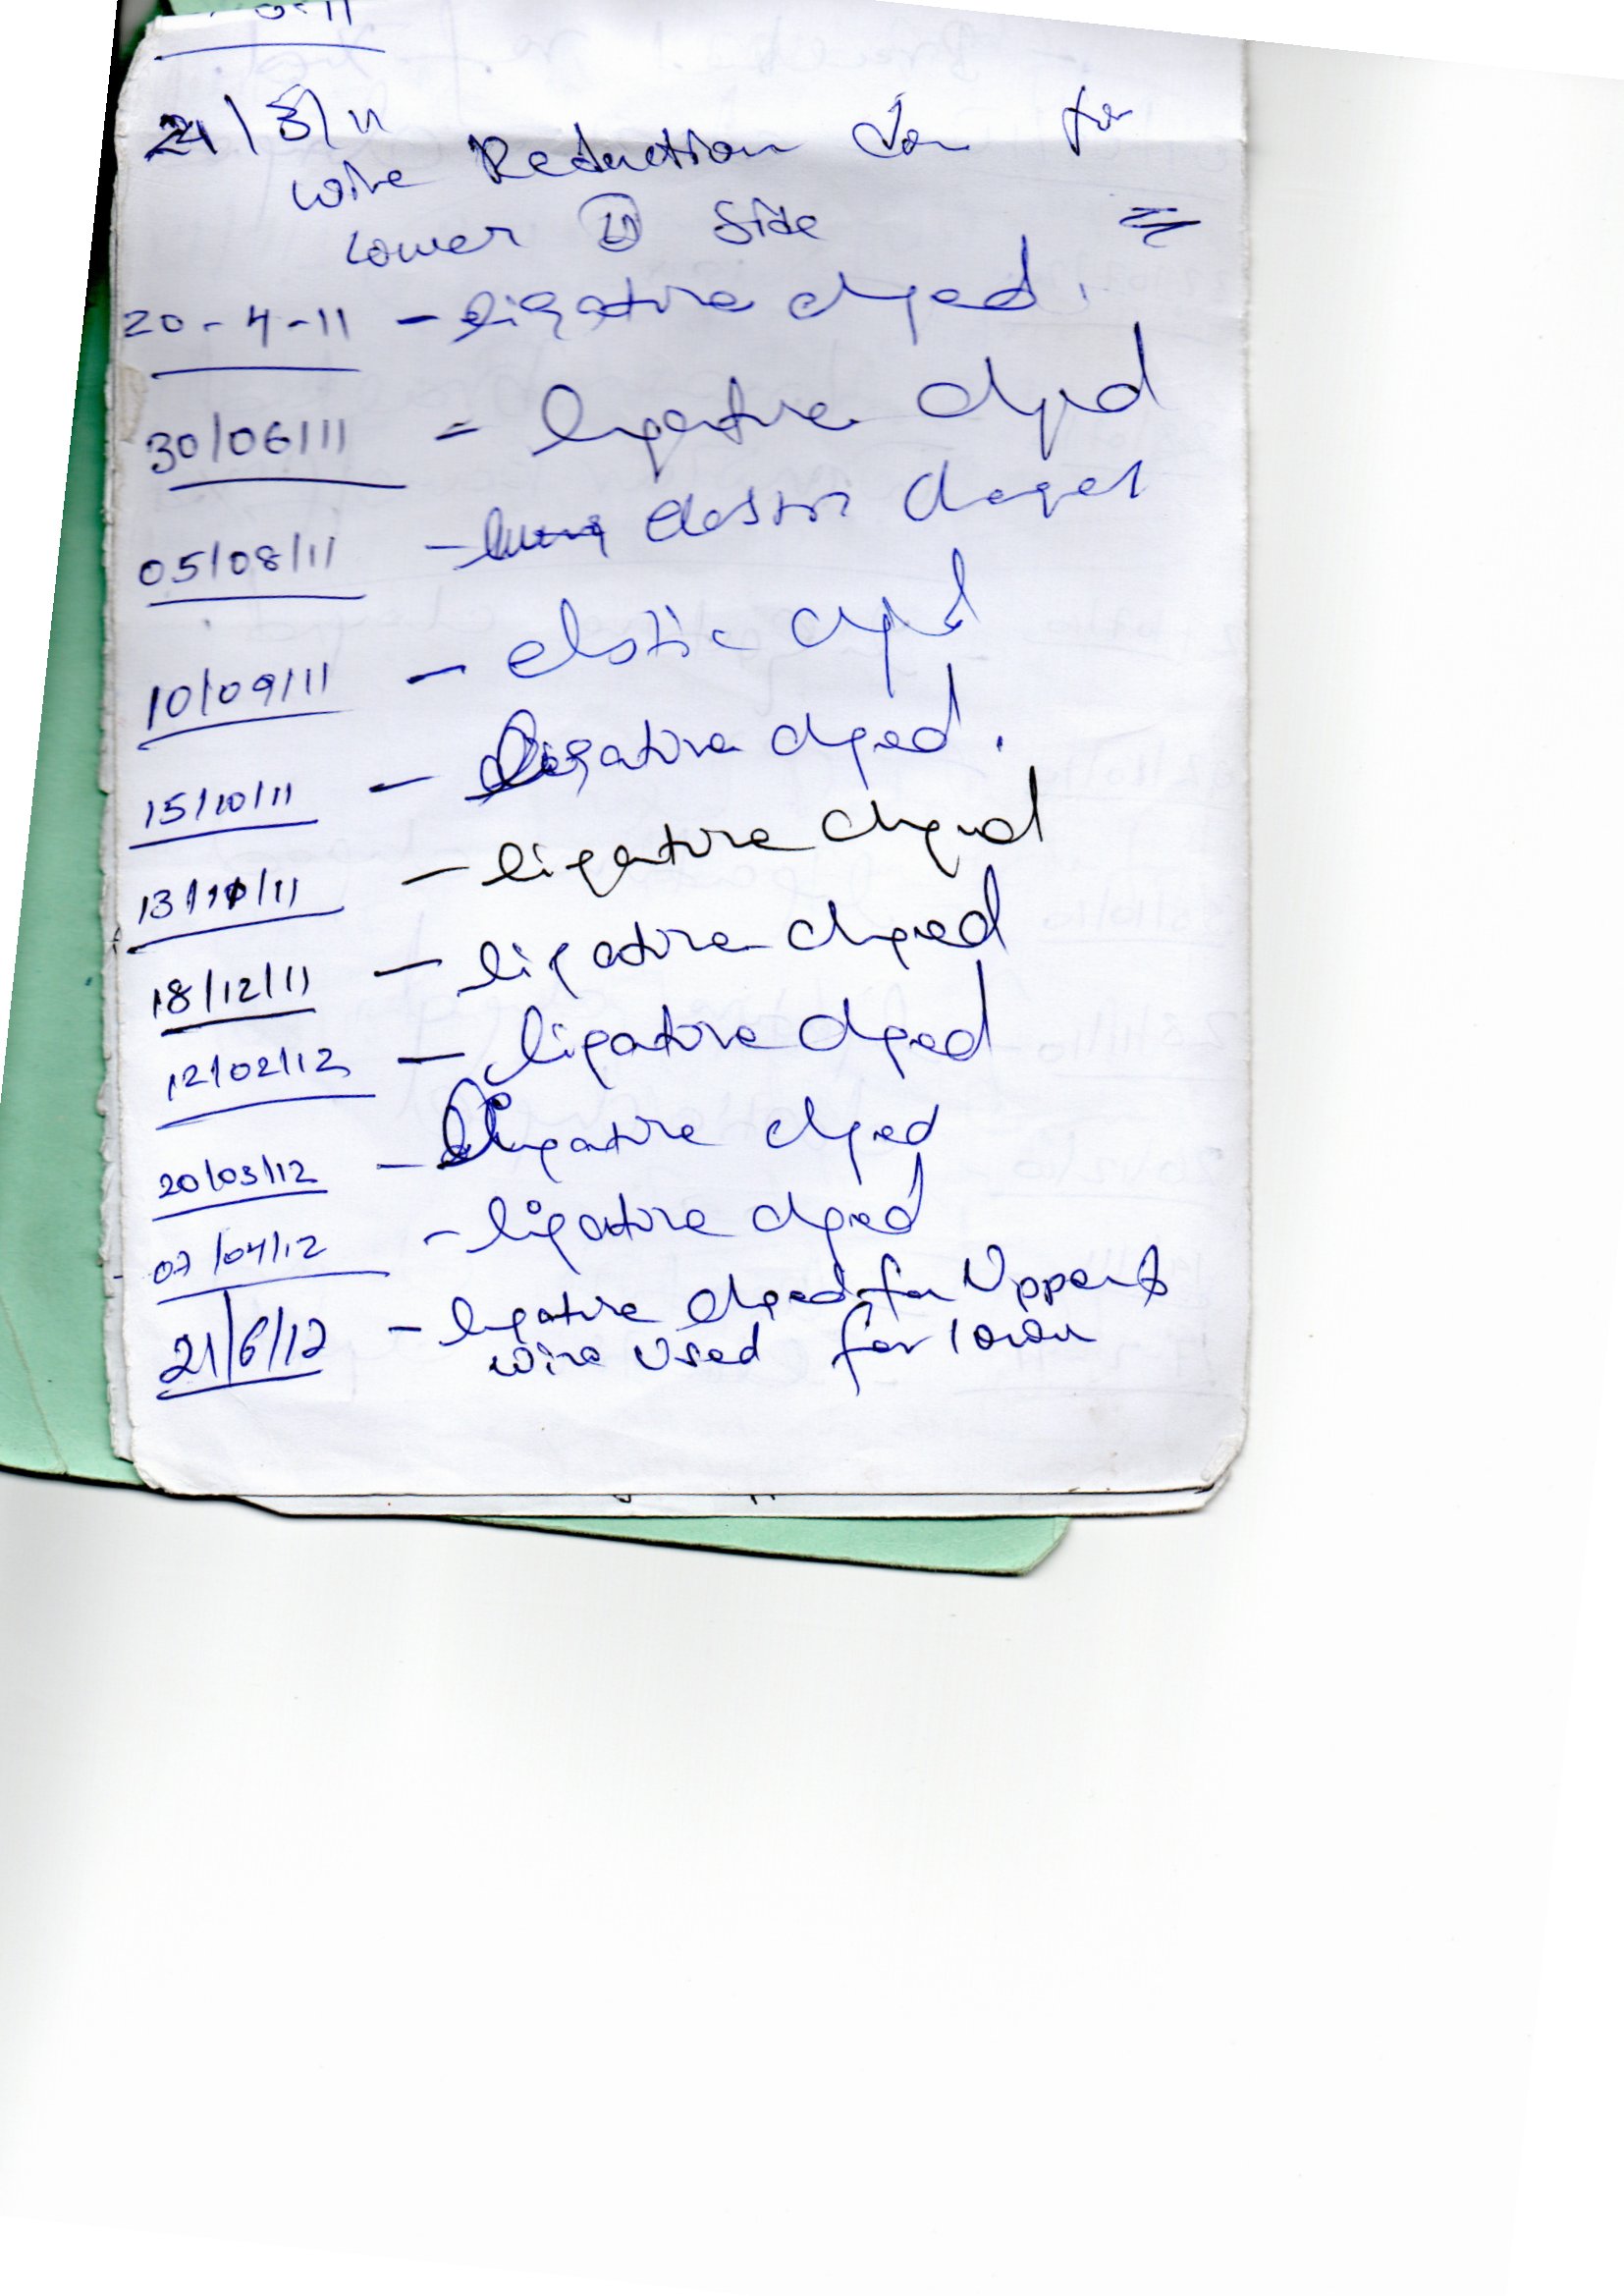 21/3/11
wire Reduction Don for
Lower Side
20-4-11 - ligature chged.
30/06/11 - ligature chged
05/08/11 - elastic changed
10/09/11 - elstic chgd
15/10/11 - ligature chged.
13/11/11 - ligature chnged
18/12/11 - ligature chnged
12/02/12 - ligature chged
20/03/12 - ligature chged
07/04/12 - ligature chged
21/6/12 - ligature chged for Upper &
wire Used for lower